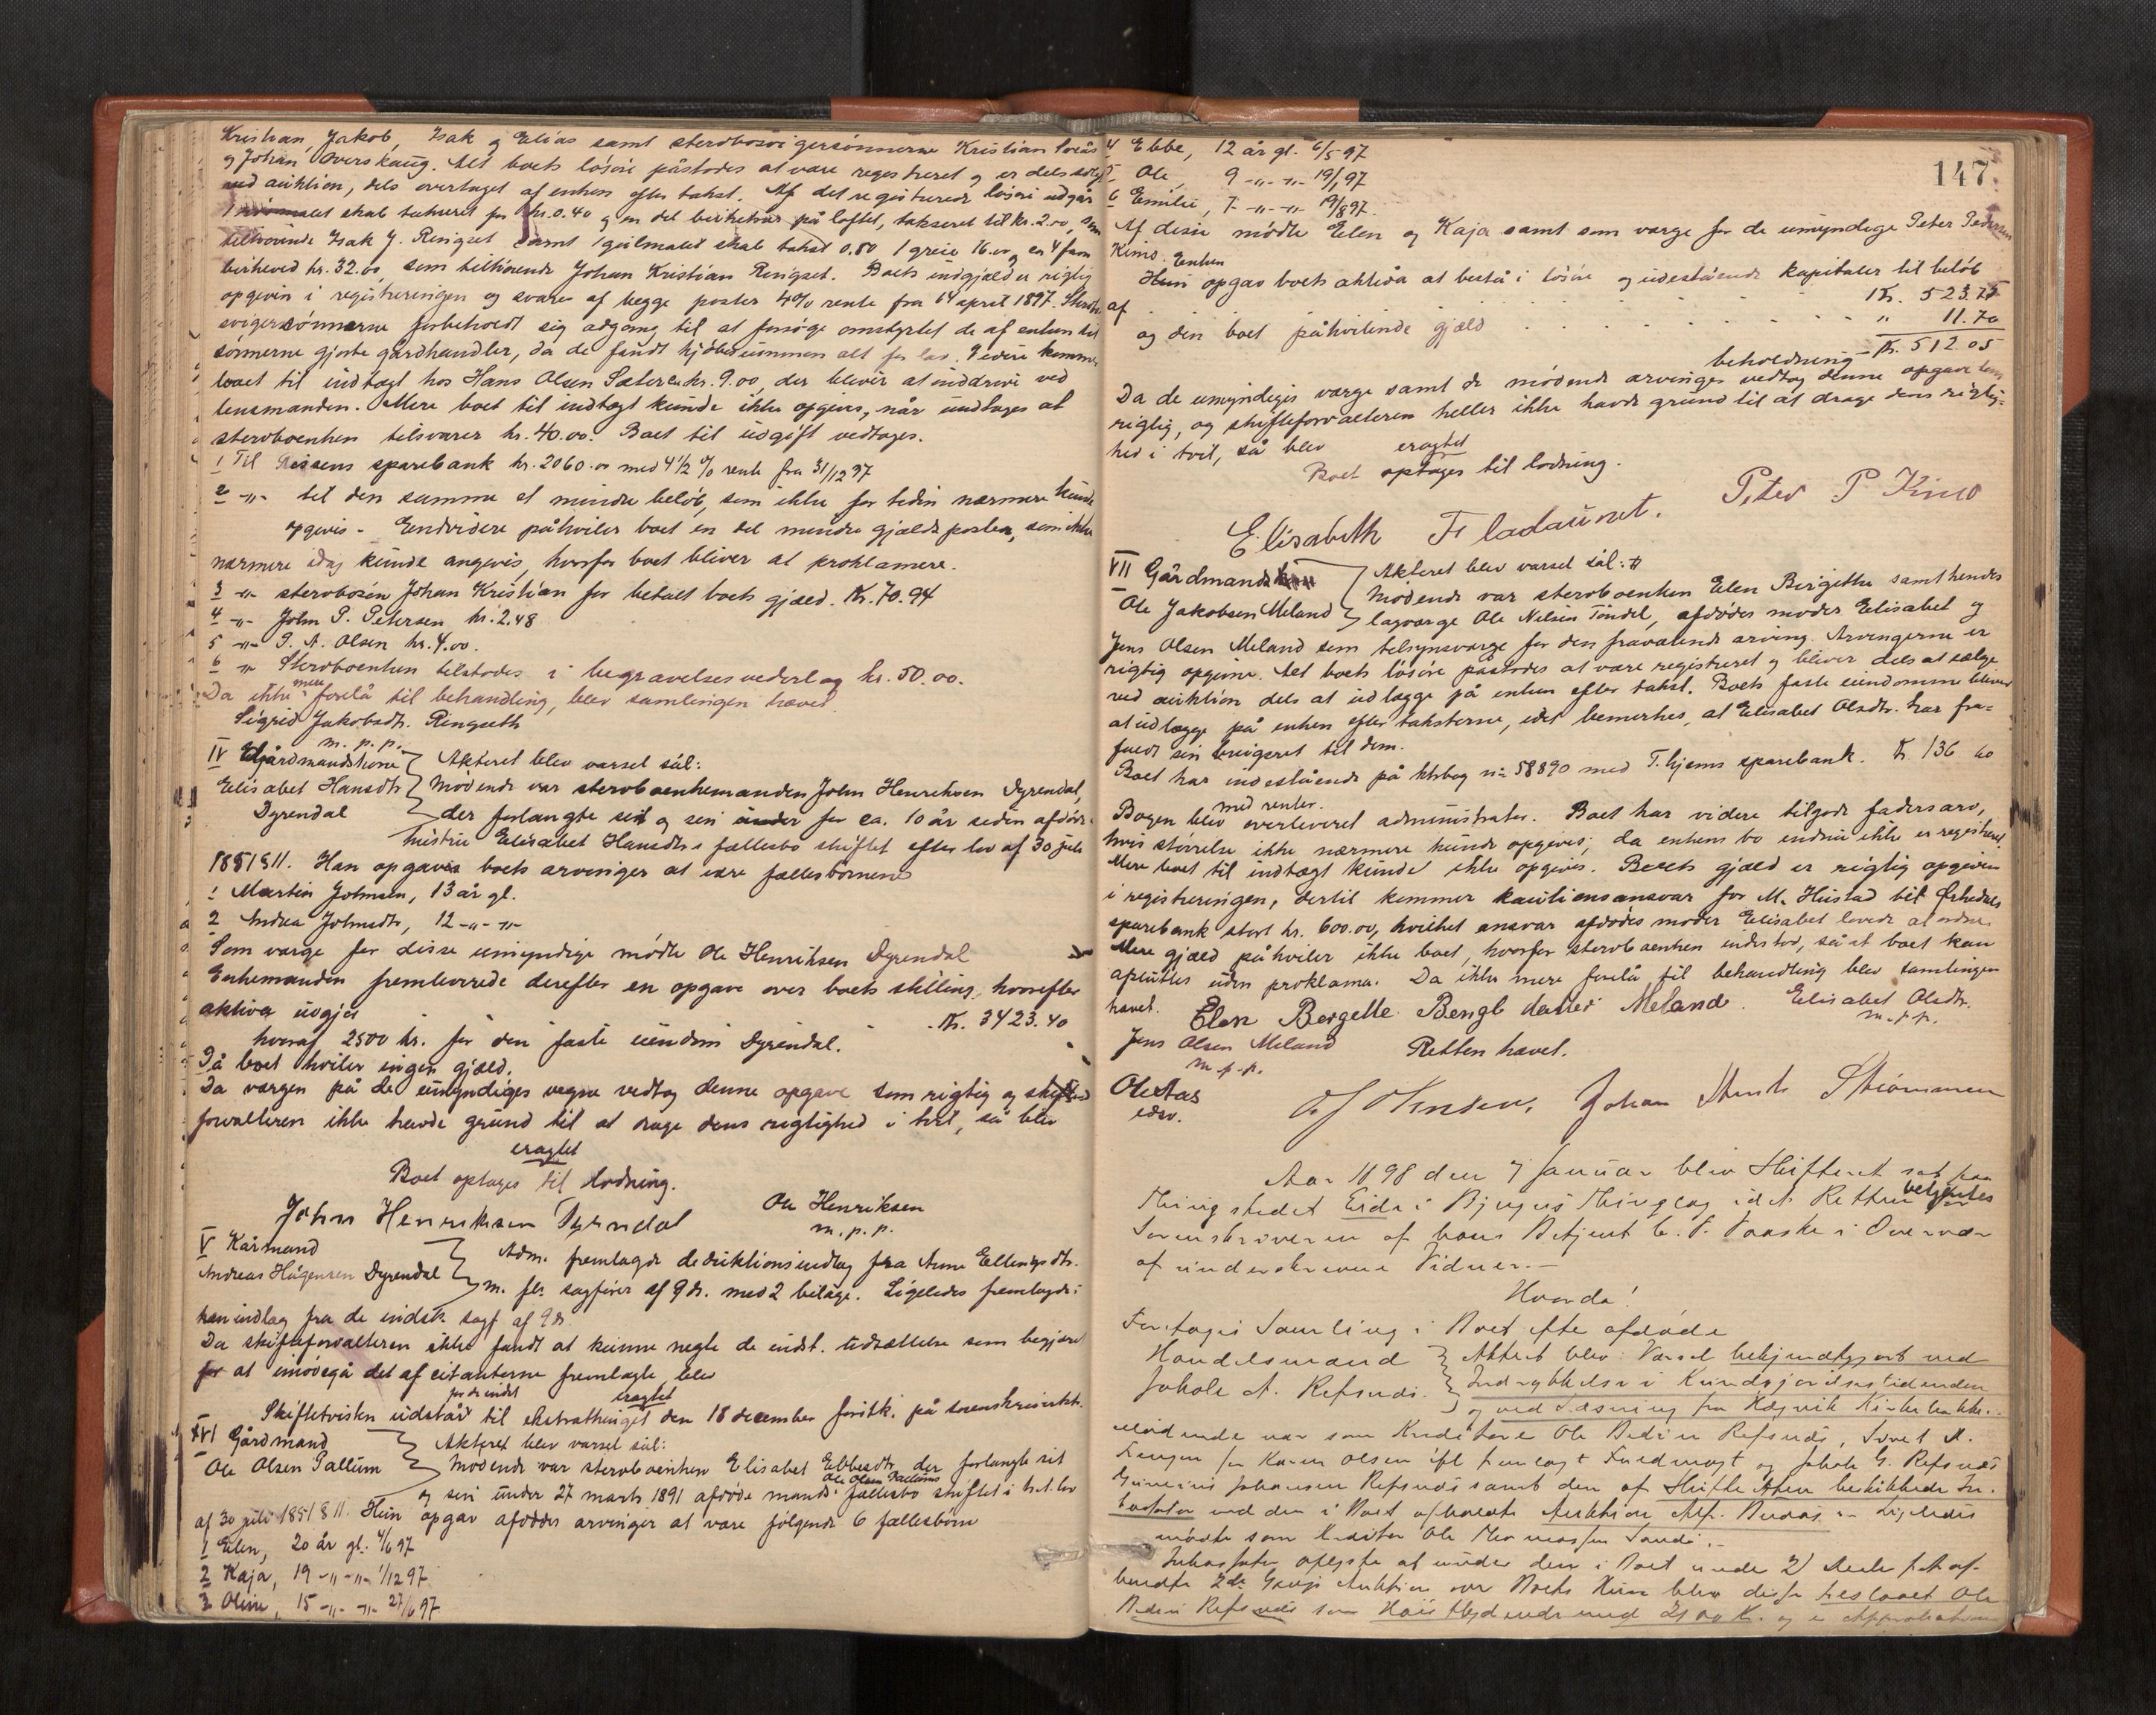 Kristian, Jakob, Isak og Elias samt sterbosvigersønnerne Kristian
og Johan Overskaug. Alt boets løsøre påstodes at være registreret og er dels solgt
ved auktion, dels overtaget af enken efter takst. Af det registrerede løsøre udgår
1 skab takseret for kr. 0.40 og en del birketrær på loftet, takseret til kr. 2.00, som
tilhørende Isak J. Ringset samt 1 gulmalet skab takst 0.80 1 greie 16.00 og en 4 favn
birkeved kr. 32.00, som tilhørende Johan Kristian Ringset. Boets indgjæld er rigtig
opgiven i registreringen og svares af begge poster 4% rente fra 14 april 1897.
svigersønnerne forbeholdt sig adgang til at forsøge omstyrtet de af enken til
sønnerne gjorte gårdhandler, da de fandt kjøbesummen alt for lav. Videre kommer
boet til indtægt hos Hans Olsen Sæter kr. 9.00, der bliver at inddrive ved
lensmanden. Mere boet til indtægt kunde ikke opgives, når undtages at
sterboenken tilsvarer kr. 40.00. Boet til udgift vedtoges.
1 Til Rissens sparebank kr. 2060.00 med 4 1/2 % rente fra 31/12 97
2 -"- til den samme et mindre beløb, som ikke for tiden nærmere kunde
opgives - Endvidere påhviler boet en del mindre gjældsposter, som ikke
nærmere idag kunde angives, hvorfor boet bliver at proklamere.
3 -"- sterbosøn Johan Kristian for betalt boets gjæld. Kr. 70.94
4 -"- John P. Petersen kr. 2.48
5 -"- P. A. Olsen kr. 4.00.
6 -"- Sterboenken tilstodes i begravelsesvederlag kr. 50.00.
Da ikke mere forelå til behandling, blev samlingen hævet.
Sigrid Jakobsdtr. Ringseth
m. p. p.
IV Gårdmandskone Akteret blev varsel sål:
Elisabet Hansdtr Mødende var sterboenkemanden John Henriksen Dyrendal,
Dyrendal der forlangte sit og sin for ca. 10 år siden afdøde
hustru Elisabet Hansdtrs fællesbo skiftet efter lov af 30 juli
1851 § 11. Han opgav boets arvinger at være fællesbørnene
1 Martin Johnsen, 13 år gl.
2 Andrea Johnsdtr, 12 -"- -"-
Som værge for disse umyndige mødte Ole Henriksen Dyrendal
Enkemanden fremleverede derefter en opgave over boets stilling, hvorefter
aktiva udgjør - - Kr. 3423.40
hvoraf 2500 kr. for den faste eiendom Dyrendal.
På boet hviler ingen gjæld.
Da værgen på de umyndiges vegne vedtog denne opgave som rigtig og skifte
forvalteren ikke havde grund til at drage dens rigtighed i tvil, så blev
eragtet
Boet optages til lodning.
John Henriksen Dyrndal Ole Henriksen
m. p. p.
V Kårmand Adm. fremlagde deduktionsindlæg fra Anne Ellingsdtr.
Andreas Hågensen Dyrendal m. fl. sagfører af 9 ds. med 2 bilage. Ligeledes fremlagdes
han indlæg fra de indst. sagf. af 9 ds
Da skifteforvalteren ikke fandt at kunne negte de indst. udsættelse som begjæret
for at imødegå det af citanterne fremlagte, blev
for de indst. eragtet
Skiftetvisten udstår til ekstrathinget den 18 december førstk. på sorenskriverkt.
VI Gårdmand Akteret blev varsel sål:
Ole Olsen Pallum Mødende var sterboenken Elisabet Ebbesdtr, der forlangte sit
og sin under 27 marts 1891 afdøde mands Ole Olsen Pallums fællesbo skiftet i h.t. lov
af 30 juli 1851 § 11. Hun opgav afdødes arvinger at være følgende 6 fællesbørn
1 Elen, 20 år gl. 4/6 97
2 Kaja, 19 -"- -"- 1/12 97
3 Oline, 15 -"- -"- 27/6 97
147.
4 Ebbe, 12 år gl. 6/5 97
5 Ole, 9 -"- -"- 19/1 97
6 Emilie, 7 -"- -"- 19/8 97.
Af disse mødte Elen og Kaja samt som værge for de umyndige Peter Pedersen
Kimo.
Enken
opgav boets aktiva at bestå i løsøre og udestående kapitaler til beløb
af Kr. 523.75
og den boet påhvilende gjæld " 11.70
beholdning Kr. 512.05
Da de umyndiges værge samt de mødende arvinger vedtog denne opgave som
rigtig, og skifteforvalteren heller ikke havde grund til at drage dens rigtig-
hed i tvil, så blev eragtet
Boet optages til lodning.
Elisabeth Fladaunet. Peter P Kimo
VII Gårdmand Akteret blev varsel sål:
Ole Jakobsen Meland Mødende var sterboenken Elen Birgitte samt hendes
lagværge Ole Nilsen Tondel, afdødes moder Elisabet og
Jens Olsen Meland som tilsynsværge for den fraværende arving. Arvingerne er
rigtig opgivne. Alt boets løsøre påstodes at være registreret og bliver dels at sælge
ved auktion dels at udlægge på enken efter takst. Boets faste eiendomme bliver
at udlægge på enken efter taksterne, idet bemerkes, at Elisabet Olsdtr. har fra=
faldt sin brugsret til dem.
Boet har indestående på ktrbog no 58890 med T.hjems sparebank. Kr 136 60
med renter.
Bogen blev overleveret administrator. Boet har videre tilgode fædrearv,
hvis størrelse ikke nærmere kunde opgives, da enkens bo endnu ikke er registreret
Mere boet til indtægt kunde ikke opgives. Boets gjæld er rigtig opgiven
i registreringen, dertil kommer kautionsansvar for M. Hustad til Ørkedals
sparebank stort kr. 600.00, hvilket ansvar afdødes moder Elisabet lovede at ordne.
Mere gjæld påhviler ikke boet, hvorfor sterboenken indestod, så at boet kan
afsluttes uden proklama. Da ikke mere forelå til behandling blev samlingen
hævet. Elen Bergette Bengtsdatter Meland. Elisabet Olsdtr.
m. p. p.
Jens Olsen Meland Retten hævet.
m. p. p.
Ole Aas
edsv.
Johan Strømmen
Aar 1898 den 7 Januar blev Skifteret sat paa
Thingstedet Eide i Bjugns Thinglag idet Retten betjentes
Sorenskriveren af hans Betjent i Overvær
af underskrevne Vidner.-
Hvorda!
Foretoges Samling i Boet efter afdøde
Handelsmand Akteret blev Varsel bekjendtgjort ved
Jakob A. Refsnes. Indrykkelse i Kundgjørelsestidenden
og ved Læsning fra Kirkebakke.
Mødende var som Kreditorer Ole Refsnes,
Karen Olsen ifl. fremlagt Fuldmagt og Jakob G. Refsnes
Johansen Refsnes samt den af Skifteretten beskikkede In-
kassator ved den i Boet afholdte Auktion Ligeledes
mødte som Kreditor Ole
Inkassator oplyste at under den i Boet
2de Gangs Auktion over Boets blev disse tilslaaet Ole
Refsnes som Høistbydende med 2100 K. og er Approbation